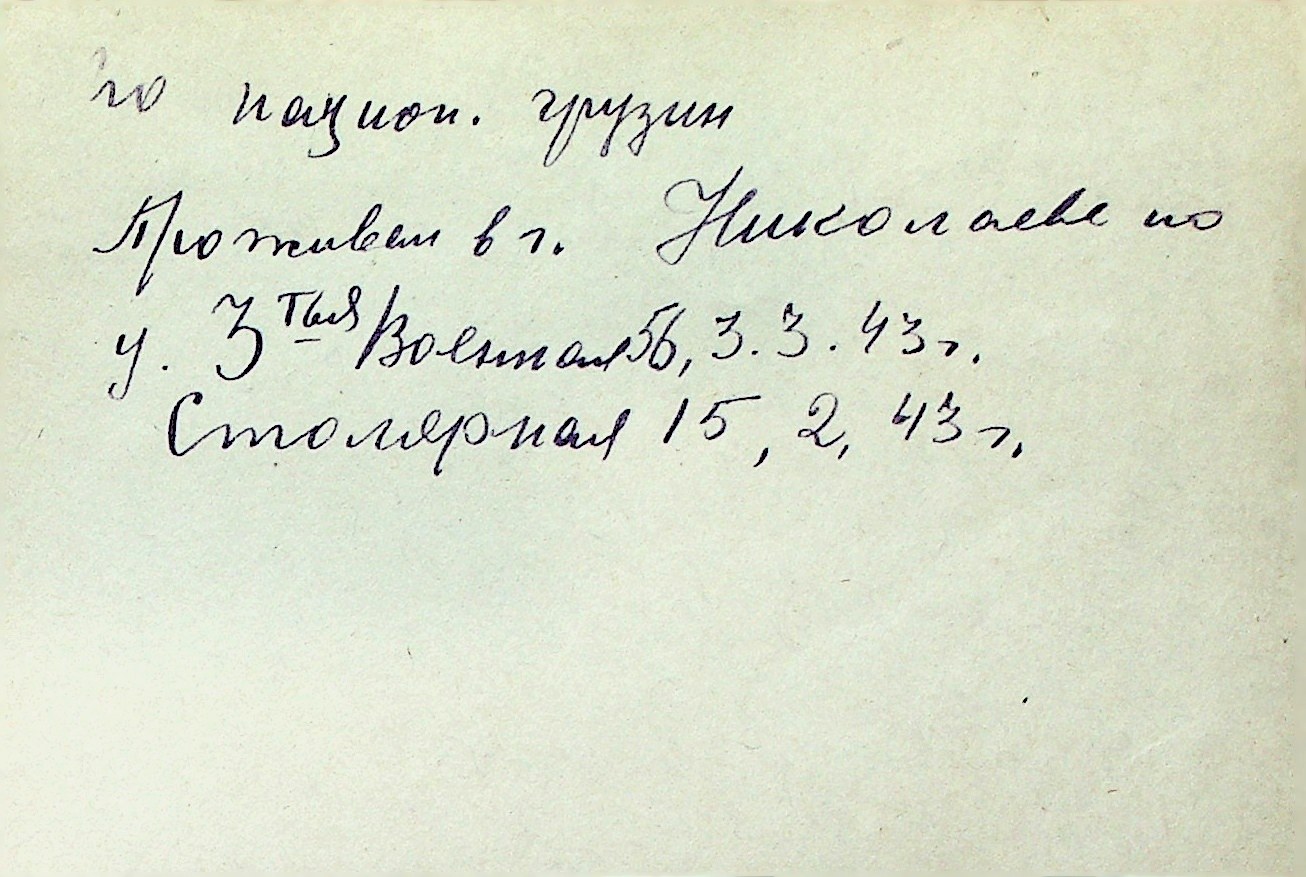 по национ. грузин
Проживал в г. Николаеве по
у. 3 тья Военная 56, 3.3.43 г.
Столярная 15, 2, 43 г.